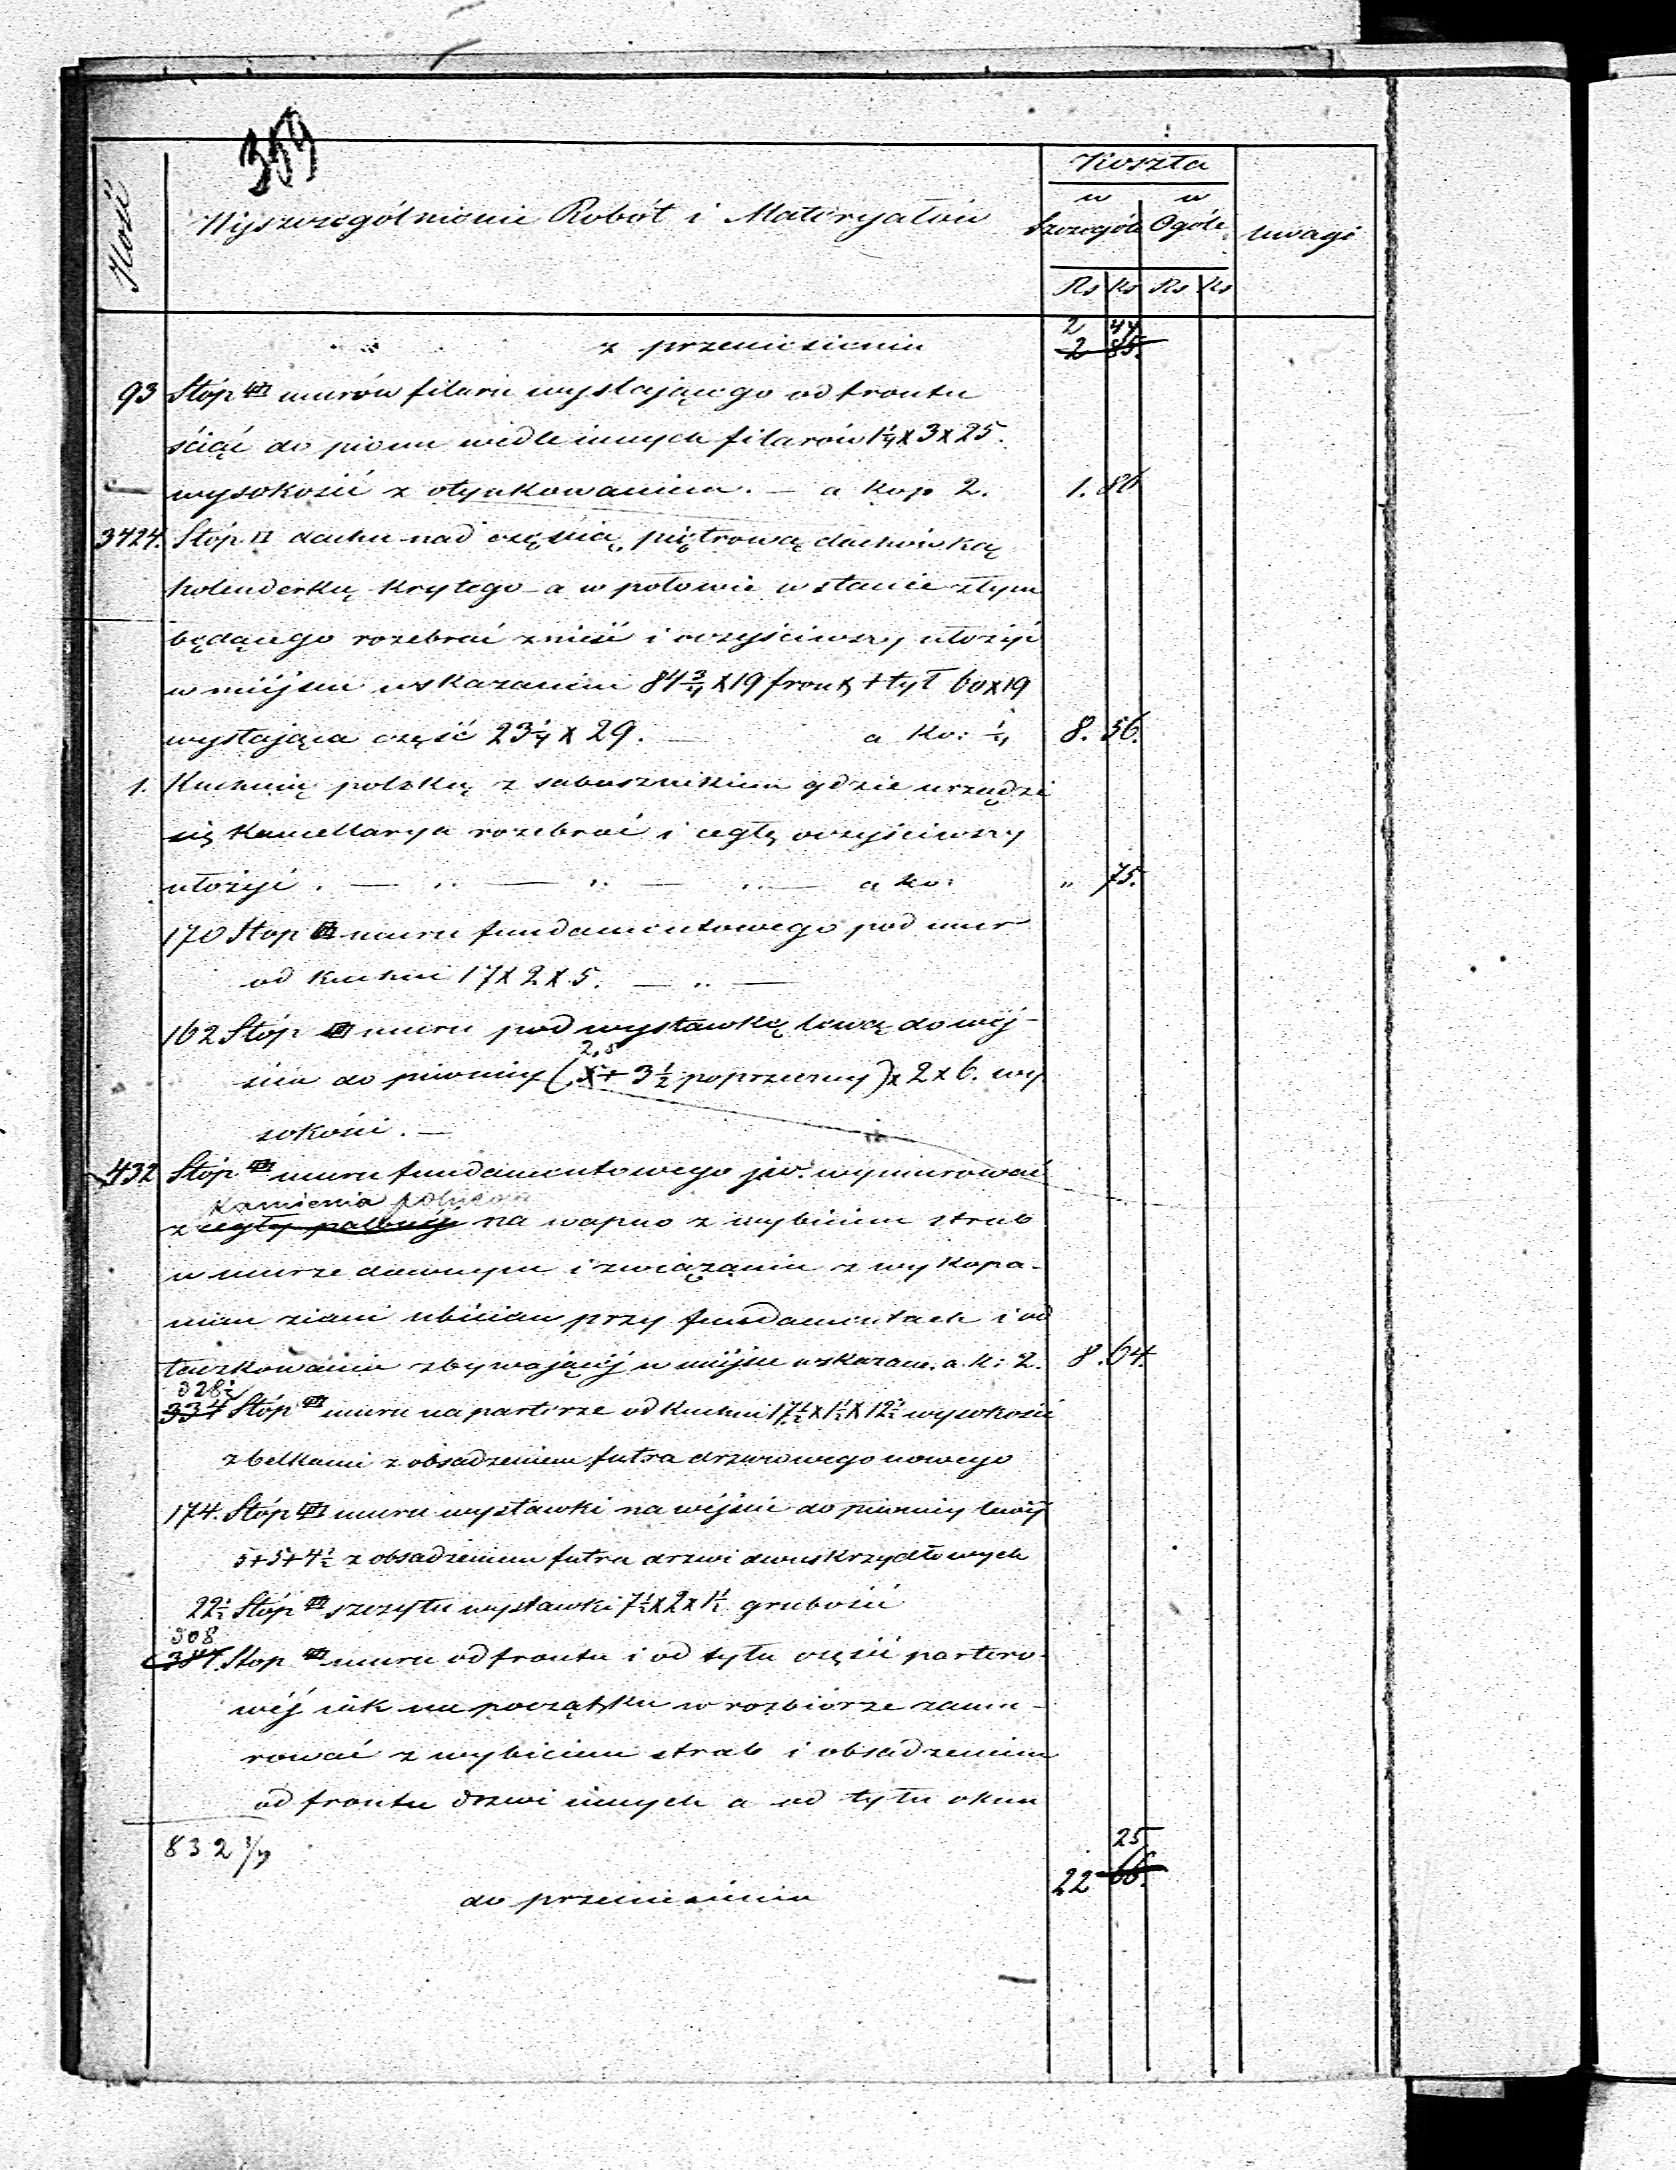 359
Ilość
Wyszczególnienie Robót i Materyałów
Koszta
w w
Szczególe Ogóle
Uwagi
Rs Ko Rs Ko
z przeniesienia 2 44
2 85.
93 Stóp murów filaru wystającego od frontu
ściąć do pionu wedle innych filarów 1¼ x 3 x 25.
wysokość z otynkowaniem. — a kop 2. 1. 86
3424. Stóp □ dachu nad częścią piętrową dachówką
holenderką krytego – a w połowie w stanie złym
będącego rozebrać znieść i oczyściwszy ułożyć
w miejscu wskazanem 84¾ x 19 front + tył 60 x 19
wystająca część 23¼ x 29. — a ko: ¼ 8. 56.
1. Kuchnię polską z sabasznikiem gdzie urządzi
się Kancellarya rozebrać i cegłę oczyściwszy
ułożyć. — „ — „ — „ — a ko: „ 75.
170 Stop muru fundamentowego pod mur
od kuchni 17 x 2 x 5. — „ —
162 Stóp muru pod wystawkę lewą do wej-
2,5
ścia do piwnicy (x + 3½ poprzeczny) x 2 x 6. wy
sokości. —
432 Stóp muru fundamentowego jw. wymurować
Kamienia polnego
z cegły palonej na wapno z wybiciem strab
w murze dawnym i związaniu z wykopa-
niem ziemi ubiciem przy fundamentach i od
taczkowaniu zbywającej w miejsce wskazane. a k: 2. 8. 64.
328½
334 Stóp muru na parterze od Kuchni 17½ x 1½ x 12½ wysokości
z belkami z obsadzeniem futra drzwiowego nowego
174. Stóp muru wystawki na wejście do piwnicy lewej
5+5+4½ z obsadzeniem futra drzwi dwuskrzydłowych
22½ Stóp szczytu wystawki 7½ x 2 x 1½ grubość
308
384. Stop muru od frontu i od tyłu części partero-
wéj jak na początku w rozbiorze zamu-
rować z wybiciem strab i obsadzeniem
od frontu drzwi innych a od tyłu okna
832¾
25
do przeniesienia 22 66.